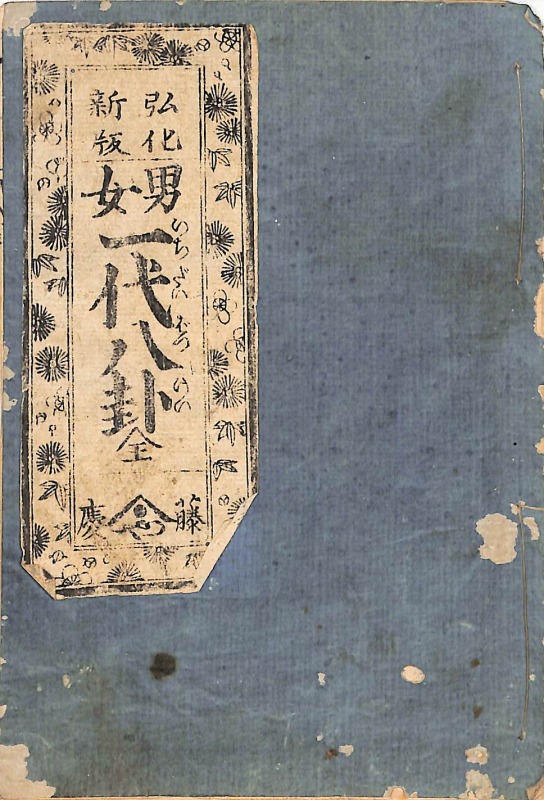 弘化
新版
男
女
一代八卦
いちだいはつけい
全
藤
慶